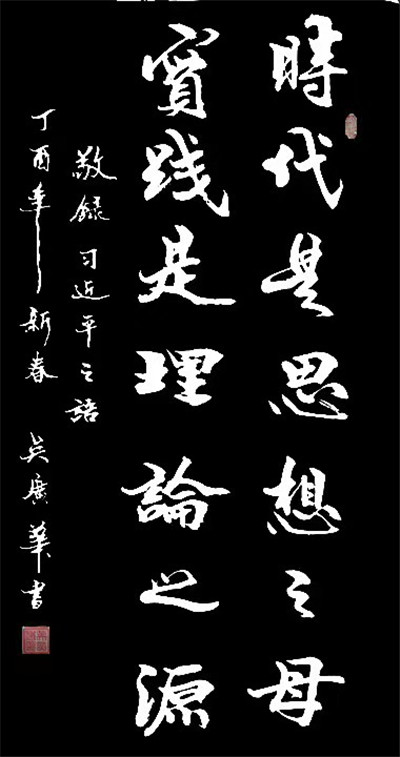 時代是思想之母
實踐是理論之源
敬錄习近平之語
丁酉年新春 吴廣華書